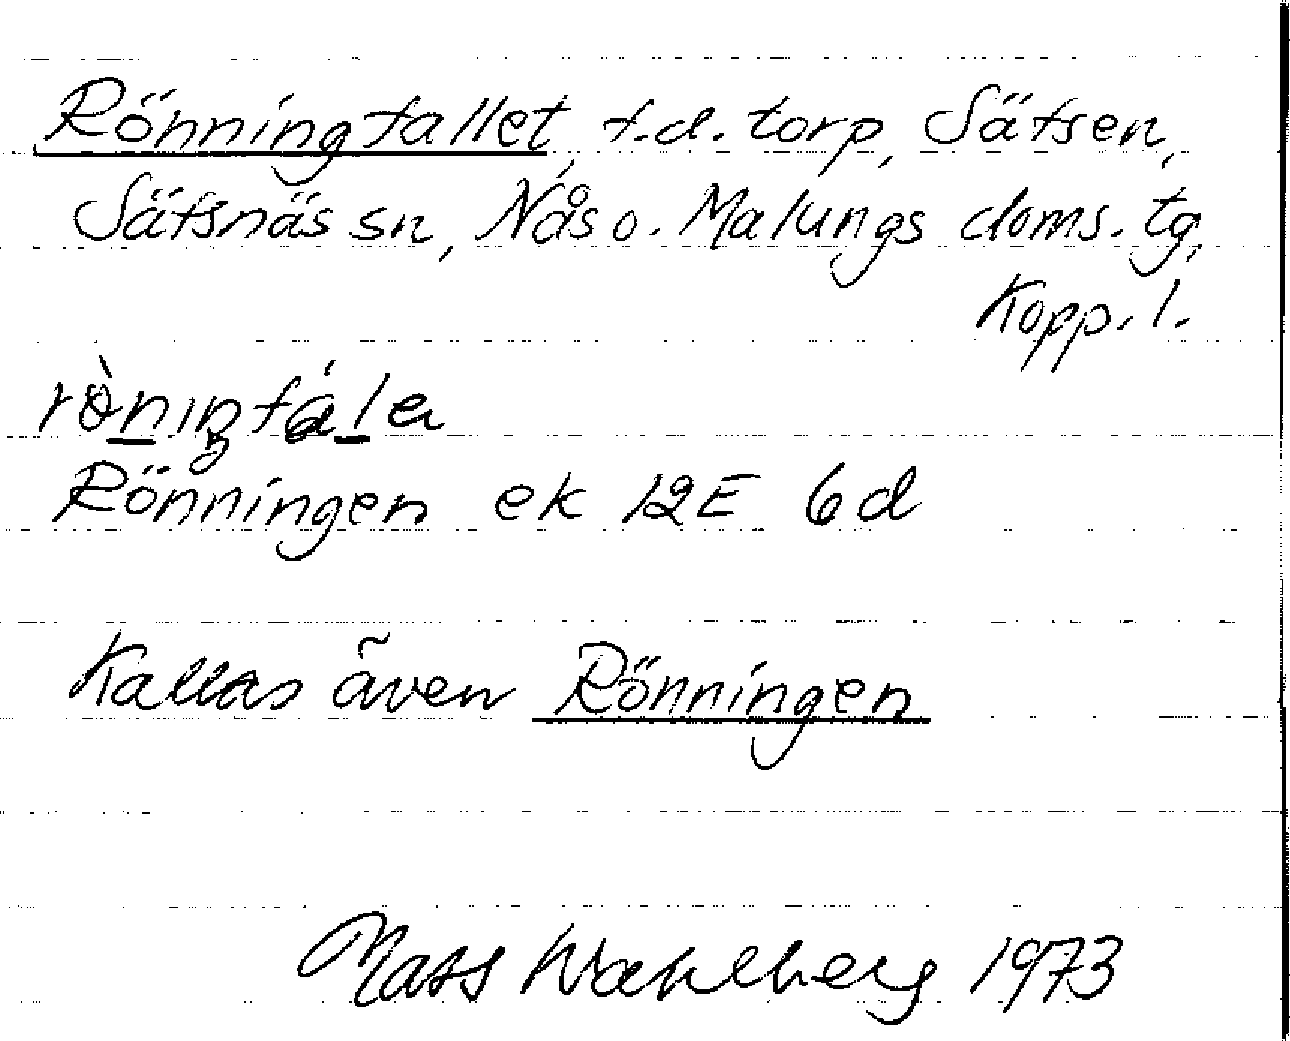 Rönningfallet, f.d. torp, Säfsen,
Säfsnäs sn, Nås o. Malungs doms. tg,
Kopp. l.
rö̀nıŋfála
Rönningen ek 12E 6d
Kallas även Rönningen
Mats Wahlberg 1973